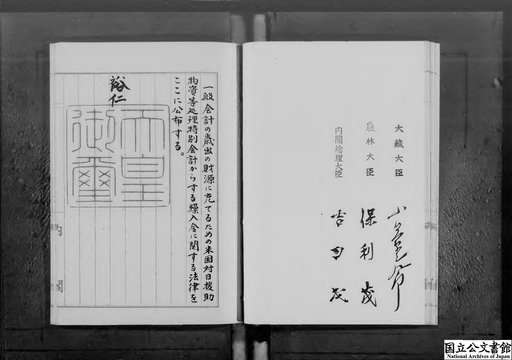 大蔵大臣
農林大臣
内閣総理大臣
保利茂
吉田茂
一般会計の歳出の財源に充てるための米国対日援助
物資等処理特別会計からする繰入金に関する法律を
ここに公布する。
裕仁
天皇
御璽
国立公文書館
National Archives of Japan